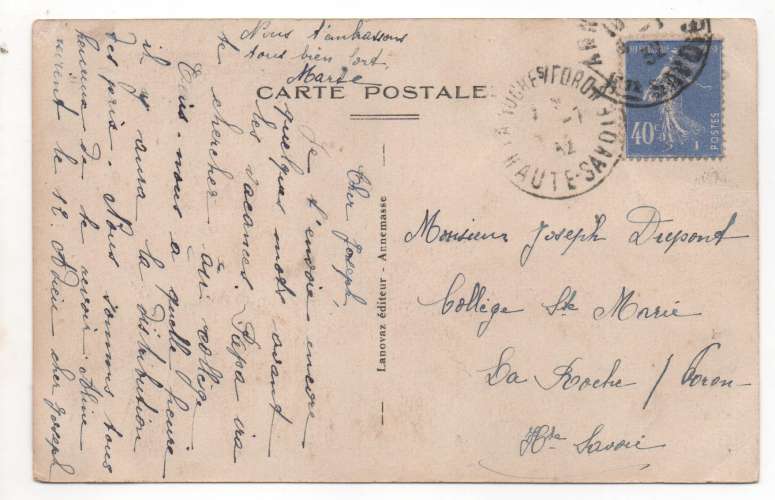 CARTE POSTALE
Cher Joseph,
Je t'envoie encore
quelques mots avant
les vacances. Papa ira
te chercher au collège
Ecris-nous a quelle heure
il y aura la distribution
des prix. Nous sommes tous
heureux de te revoir. Aline
vient le 12. Adieu cher Joseph
Nous t'embrassons
tous bien fort,
Lanovaz éditeur - Annemasse
HAUTE-SAVOIE
40c
POSTES
Monsieur Joseph Dupont
Collège Ste Marie
La Roche / Foron
Hte Savoie